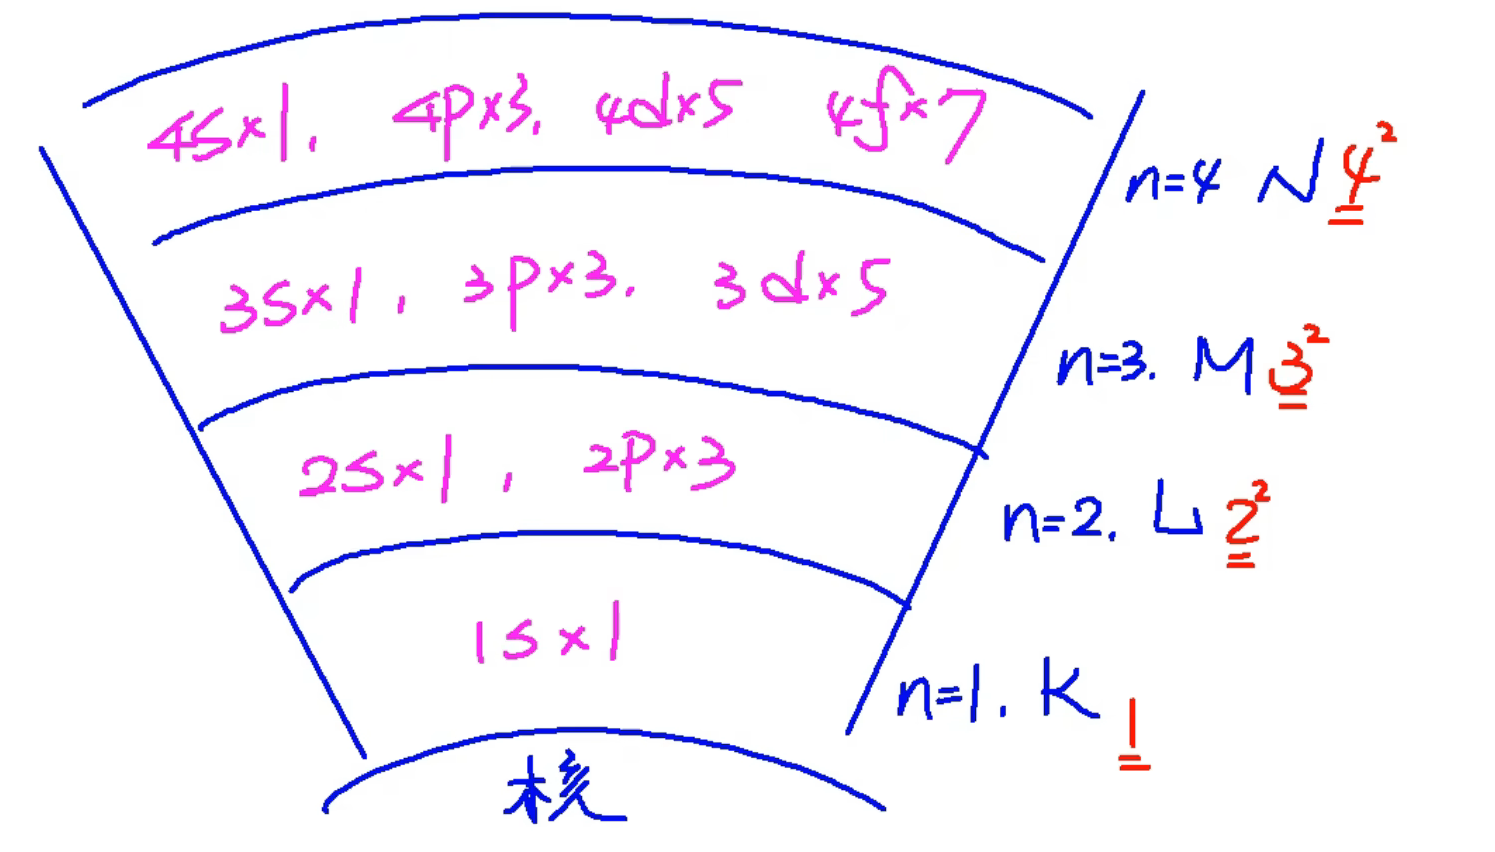 4s×1, 4p×3, 4d×5 4f×7
n=4 N 4²
3s×1, 3p×3, 3d×5
n=3. M 3²
2s×1, 2p×3
n=2. L 2²
1s×1
n=1. K 1
核